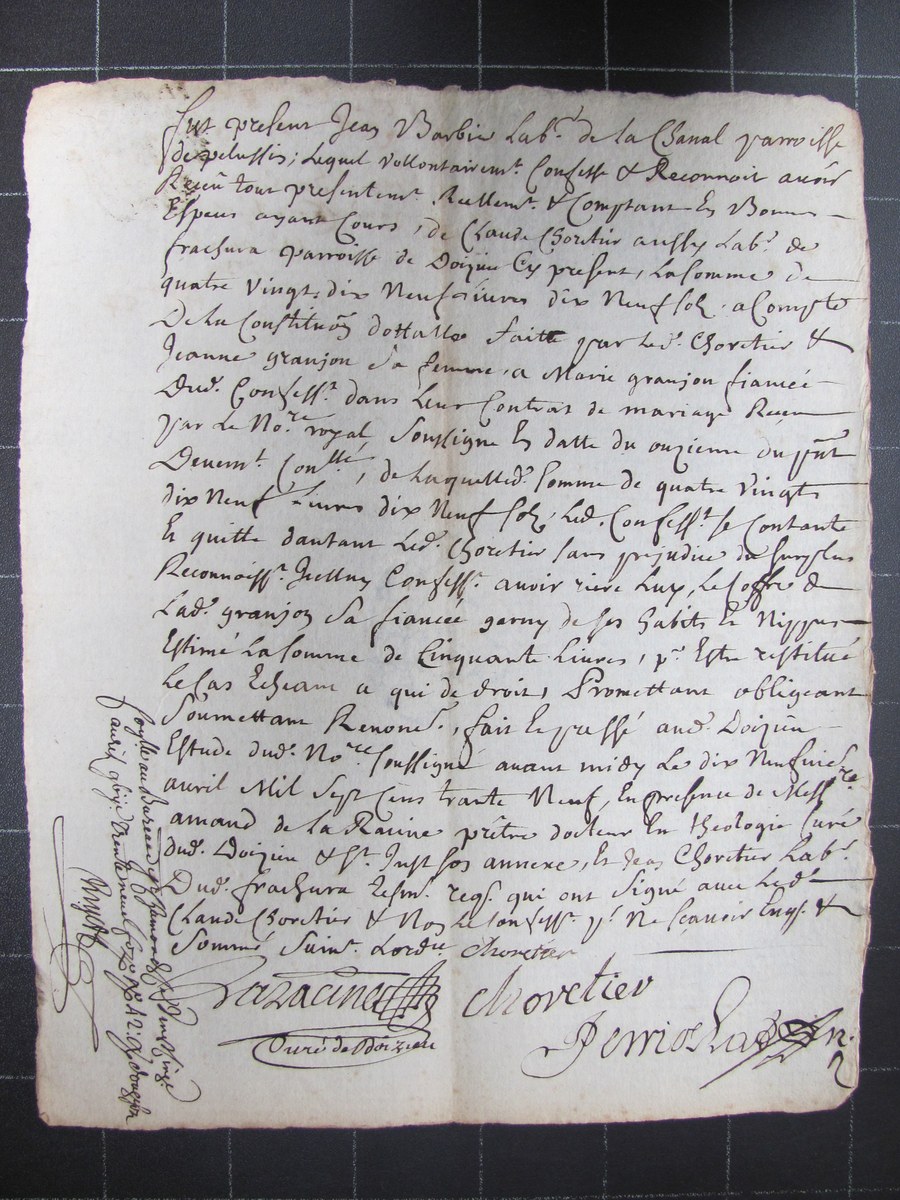 fut present Jean Barbier Labr. de la Chanal parroisse
de pelussin; Lequel vollontairemt. Confesse & Reconnoit avoir
Receu tout presentemt. Reellemt. & Comptant En Bonnes
Especes ayant Cours, de Claude Choretier aussy Labr. de
frachura parroisse de Doizieu Cy present, La somme de
quatre vingt dix Neuf Livres dix Neuf solz, a Compte
De la Constituõn dottalle faitte par led. Choretier &
Jeanne granjon Sa femme, a Marie granjon fiancée
Dud. Confesst. dans Leur Contrat de mariage Receu
par Le Nore. royal soussigné En datte du onzieme du pñt
Deuemt. Conllé, de Laquelle d. somme de quatre vingts
dix Neuf Livres dix Neuf solz, Led. Confesst. se Contante
En quitte dautant Led. Choretier sans prejudice du surplus
Reconnoisst. Icelluy Confesst. avoir riere Luy, Le Coffre de
Lad. granjon Sa fiancée garny de ses habits Et Nippes
Estimé La somme de Cinquante Livres, pr. Estre restitué
Le Cas Echeant a qui de droit, Promettant obligeant
Soumettant Renonct., fait Et passé aud. Doizieu
Estude dud. Nore. soussigné avant midy Le dix Neufvieme
avril Mil sept cens trante Neuf, En presence de Messre
amand de la Racine prêtre docteur En theologie Curé
dud. Doizieu & St. Just son annexe, Et Jean Choretier Labr.
Dud. frachura tesmt. reqs. qui ont signé avec Led.
Claude Choretier & Non Le Confesst. pr. Ne sçavoir Enqs. &
Sommé Suivt. Lordce. Choretier
Larazine Choretier
Curé de Doizieu
Perrochat
avril trente neuf